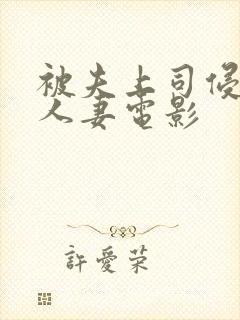 被夫上司侵
人妻電影
許愛荣